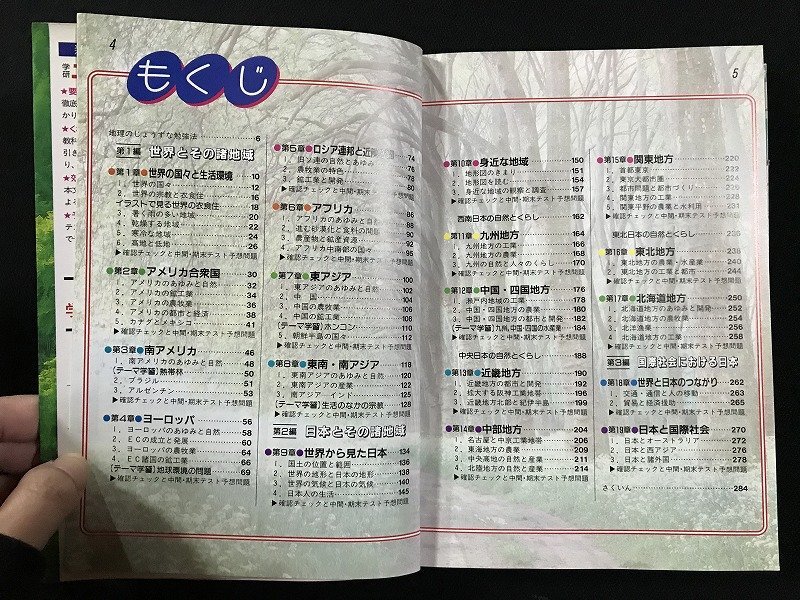 4
もくじ
地理のじょうずな勉強法 6
第1編 世界とその諸地域
第1章 世界の国々と生活環境 10
1. 世界の国々 12
2. 世界の宗教と衣食住 16
イラストで見る世界の衣食住 18
3. 暑く雨の多い地域 20
4. 乾燥する地域 22
5. 寒冷な地域 24
6. 高地と低地 26
▶確認チェックと中間・期末テスト予想問題
第2章 アメリカ合衆国 30
1. アメリカのあゆみと自然 32
2. アメリカの鉱工業 34
3. アメリカの農牧業 36
4. アメリカの都市と経済 38
5. カナダとメキシコ 41
▶確認チェックと中間・期末テスト予想問題
第3章 南アメリカ 46
1. 南アメリカのあゆみと自然 48
〔テーマ学習〕熱帯林 50
2. ブラジル 51
3. アルゼンチン 53
▶確認チェックと中間・期末テスト予想問題
第4章 ヨーロッパ 56
1. ヨーロッパのあゆみと自然 58
2. ECの成立と発展 60
3. ヨーロッパの農牧業 64
4. EC諸国の鉱工業 66
〔テーマ学習〕地球環境の問題 69
▶確認チェックと中間・期末テスト予想問題
第5章 ロシア連邦と近隣 74
1. 旧ソ連の自然とあゆみ 76
2. 農牧業の特色 78
3. 鉱工業と開発 80
▶確認チェックと中間・期末テスト予想問題
第6章 アフリカ 86
1. アフリカのあゆみと自然 88
2. 進む砂漠化と食料の問題 90
3. 農産物と鉱産資源 92
4. アフリカ中南部の国々 95
▶確認チェックと中間・期末テスト予想問題
第7章 東アジア 100
1. 東アジアのあゆみと自然 102
2. 中国 104
3. 中国の農牧業 106
4. 中国の鉱工業 108
〔テーマ学習〕ホンコン 111
5. 朝鮮半島の国々 112
▶確認チェックと中間・期末テスト予想問題
第8章 東南・南アジア 118
1. 東南アジアのあゆみと自然 120
2. 東南アジアの産業 122
3. 南アジア―インド 125
〔テーマ学習〕生活のなかの宗教 128
▶確認チェックと中間・期末テスト予想問題
第2編 日本とその諸地域
第9章 世界から見た日本 134
1. 国土の位置と範囲 136
2. 世界の地形と日本の地形 138
3. 世界の気候と日本の気候 140
4. 日本人の生活 145
▶確認チェックと中間・期末テスト予想問題
5
第10章 身近な地域 150
1. 地形図のきまり 151
2. 地形図を読む 154
3. 身近な地域の観察と調査 157
▶確認チェックと中間・期末テスト予想問題
西南日本の自然とくらし 162
第11章 九州地方 164
1. 九州地方の工業 166
2. 九州地方の農業 168
3. 九州の自然と人々のくらし 170
▶確認チェックと中間・期末テスト予想問題
第12章 中国・四国地方 176
1. 瀬戸内地域の工業 178
2. 中国・四国地方の農業 180
3. 中国・四国地方の都市と開発 182
〔テーマ学習〕九州,中国・四国の水産業 184
▶確認チェックと中間・期末テスト予想問題
中央日本の自然とくらし 188
第13章 近畿地方 190
1. 近畿地方の都市と開発 192
2. 拡大する阪神工業地帯 196
3. 近畿地方北部と紀伊半島 199
▶確認チェックと中間・期末テスト予想問題
第14章 中部地方 204
1. 名古屋と中京工業地帯 206
2. 東海地方の農業 209
3. 中央高地の自然と産業 211
4. 北陸地方の自然と産業 214
▶確認チェックと中間・期末テスト予想問題
第15章 関東地方 220
1. 首都東京 222
2. 東京大都市圏 224
3. 都市問題と都市づくり 226
4. 関東地方の工業 228
5. 関東平野の農業と水利用 231
▶確認チェックと中間・期末テスト予想問題
東北日本の自然とくらし 236
第16章 東北地方 238
1. 東北地方の農業・水産業 240
2. 東北地方の工業と都市 244
▶確認チェックと中間・期末テスト予想問題
第17章 北海道地方 250
1. 北海道地方のあゆみと開発 252
2. 北海道地方の農牧業 254
3. 北洋漁業 256
4. 北海道地方の鉱工業 258
▶確認チェックと中間・期末テスト予想問題
第3編 国際社会における日本
第18章 世界と日本のつながり 262
1. 交通・通信と人の移動 263
2. 貿易と経済援助 265
▶確認チェックと中間・期末テスト予想問題
第19章 日本と国際社会 270
1. 日本とオーストラリア 271
2. 日本と西アジア 276
3. 日本と諸外国 278
▶確認チェックと中間・期末テスト予想問題
さくいん 284